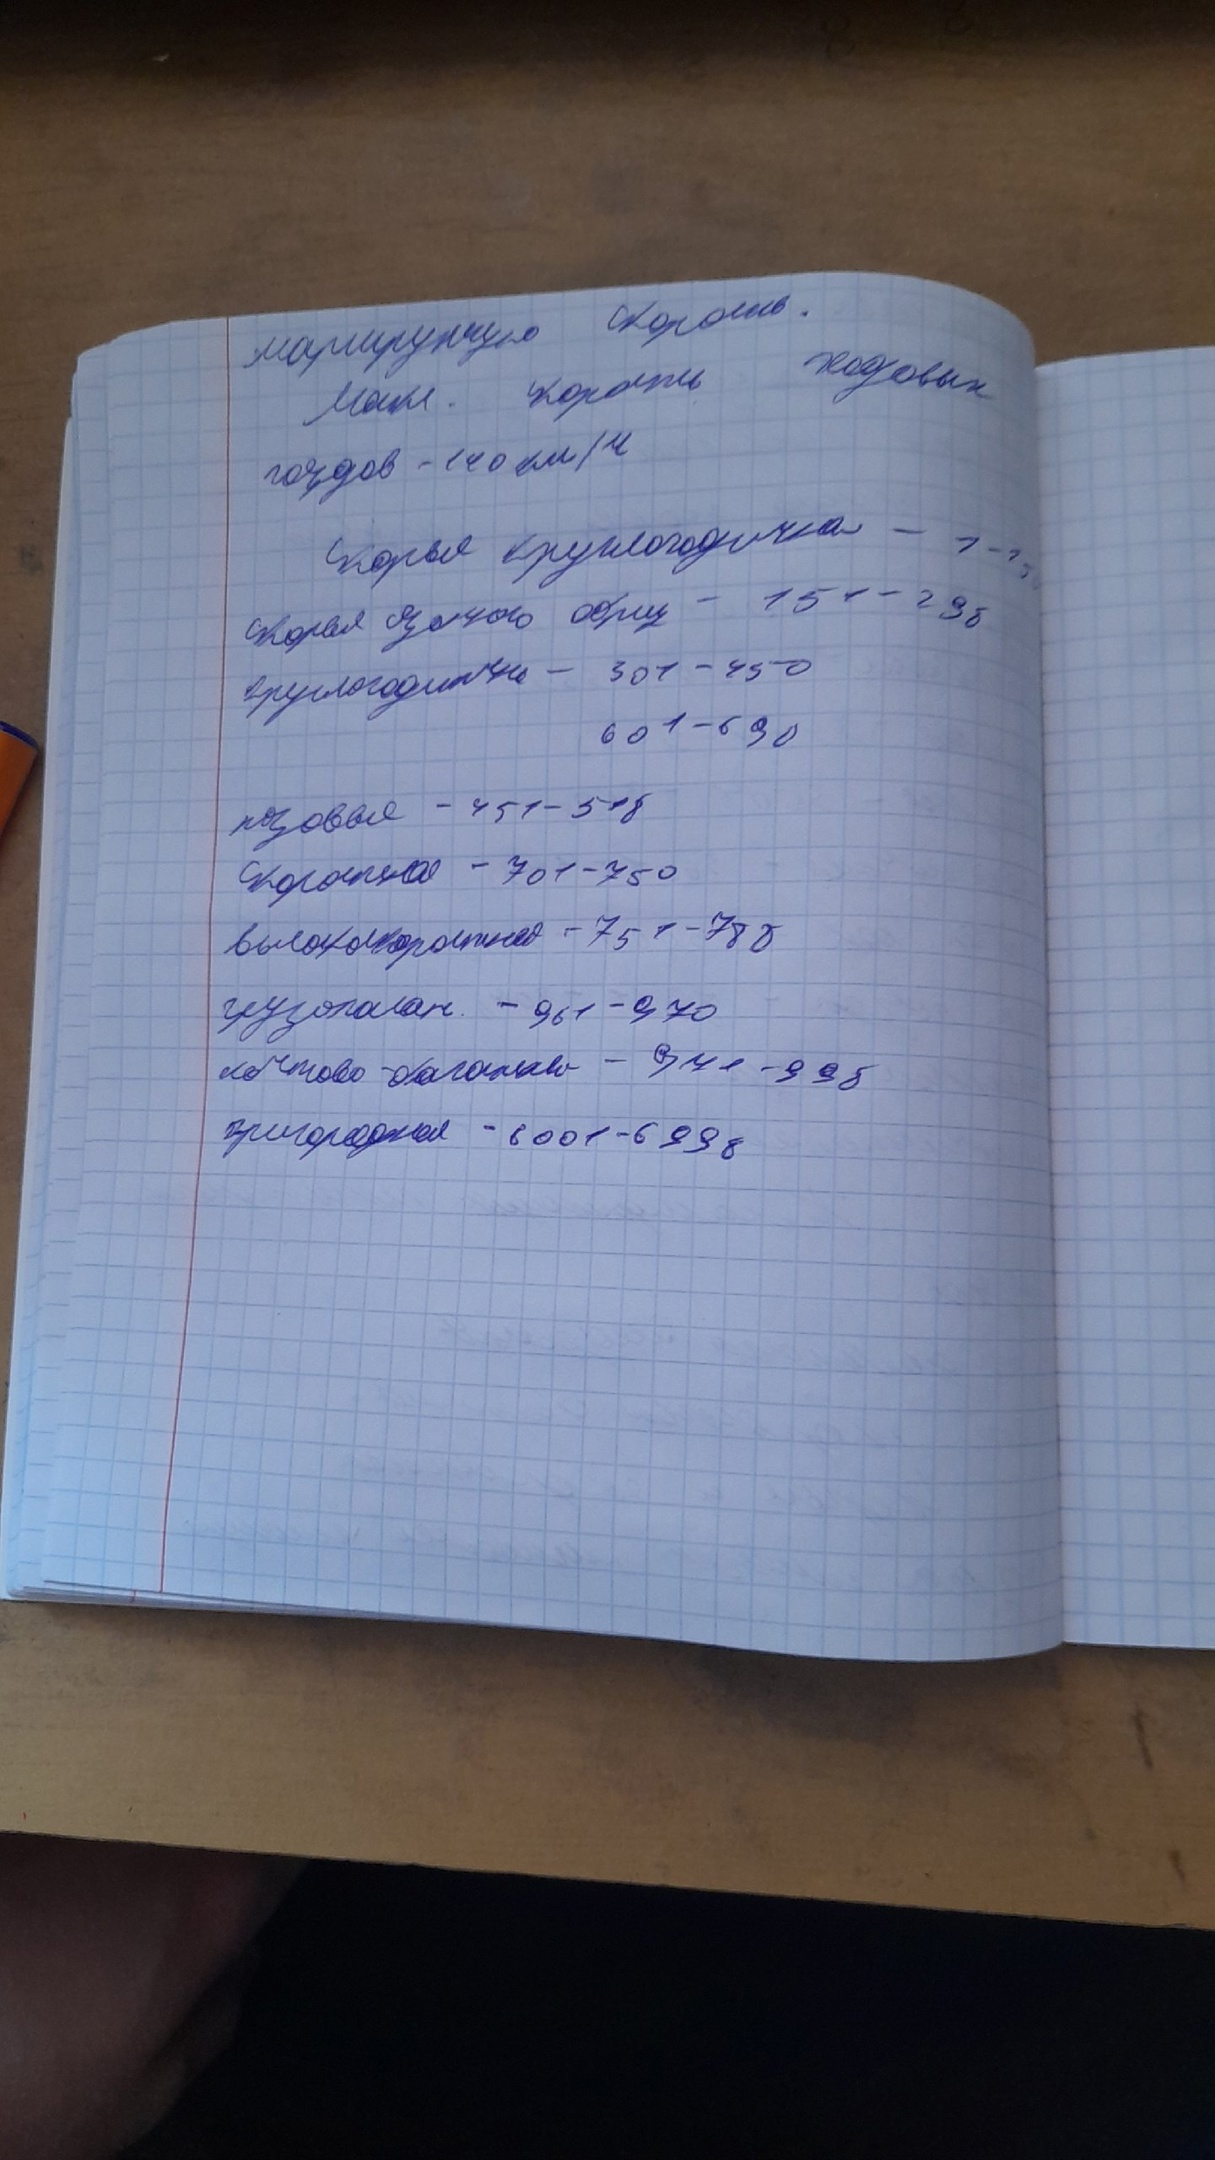 маршрутную скорость.
Макс. скорость
поездов - 140 км/ч
Скорые круглогодичные - 1-150
Скорые сезонного обращ - 151-298
круглогодичные - 301-450
601-690
разовые - 451-518
Скоростные - 701-750
высокоскоростные - 751-788
грузопасаж. - 961-970
почтово-багажные - 971-998
пригородная - 6001-6998